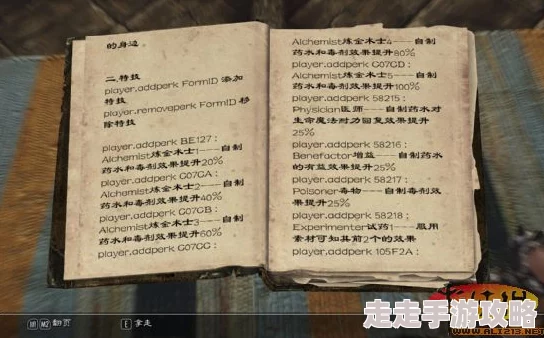 的身边。
二.特技
player.addperk FormID 添加
特技
player.removeperk FormID 移
除特技
player.addperk BE127：
Alchemist炼金术士1---自制
药水和毒剂效果提升20%
player.addperk C07CA：
Alchemist炼金术士2---自制
药水和毒剂效果提升40%
player.addperk C07CB：
Alchemist炼金术士3---自制
药水和毒剂效果提升60%
player.addperk C07CC：
Alchemist炼金术士4---自制
药水和毒剂效果提升80%
player.addperk C07CD：
Alchemist炼金术士5---自制
药水和毒剂效果提升100%
player.addperk 58215：
Physician医师---自制药水对
生命魔法耐力回复效果提升
25%
player.addperk 58216：
Benefactor增益---自制药水
的有益效果提升25%
player.addperk 58217：
Poisoner毒物---自制毒剂效
果提升25%
player.addperk 58218：
Experimenter试药1---服用
素材可知其前2个的效果
player.addperk 105F2A：
M1 M2 翻页
E 拿走
走走手游攻略
www.ali213.net